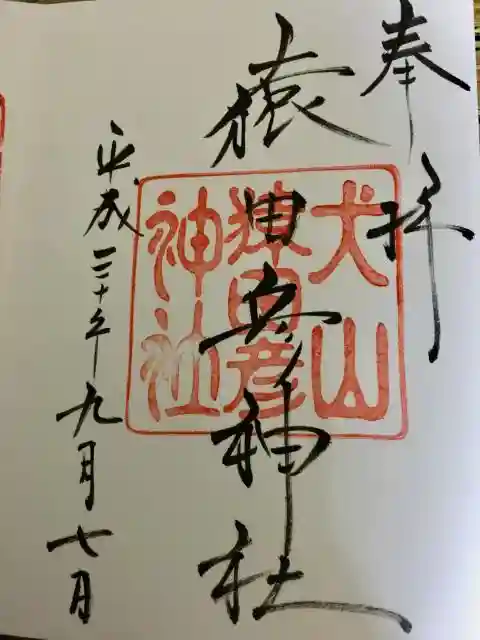 奉拝
猿田彦神社
犬山
猿田彦
神社
平成三十年九月七日